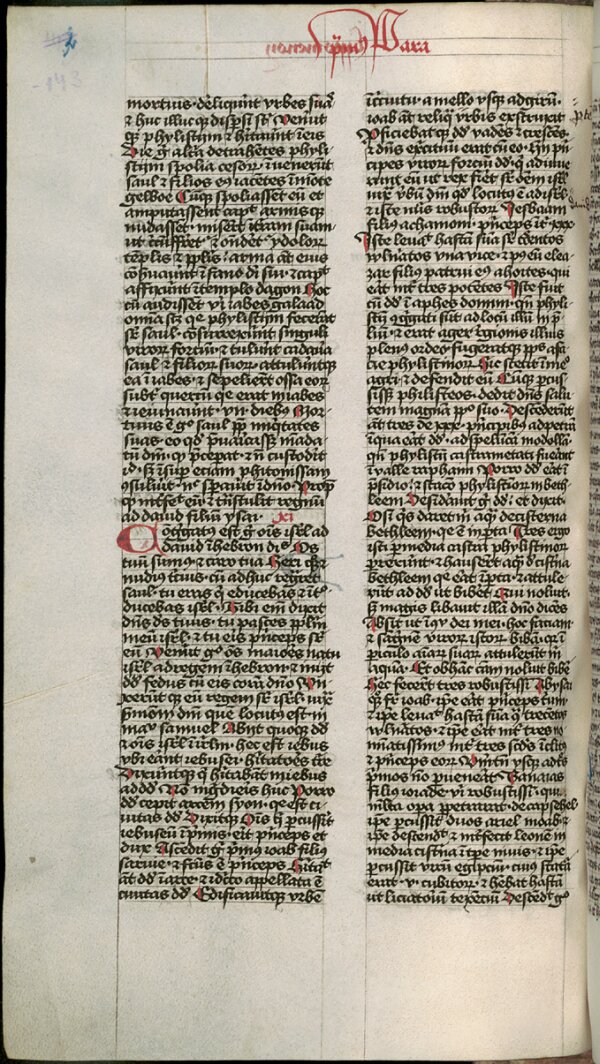 primus Para
143
mortuus · deliquerunt urbes suas
& huc illucque dispersi sunt Venerunt
que phylistijm & habitaverunt in eis
Die gº altera detrahentes phyli
stijm spolia cesorum & venerunt
saul & filios eius iacentes in monte
gelboe Cumque spoliassent eum et
amputassent caput armisque
nudassent · miserunt in terram suam
ut circumferretur & ostenderetur ydolorum
templis & populis · arma autem eius
consecraverunt in fano dei sui · & caput
affixerunt in templo dagon Hoc
cum audissent viri iabes galaad
omnia scilicet que phylistijm fecerant
super saul · consurrexerunt singuli
virorum fortium · & tulerunt cadavera
saul & filiorum suorum · attuleruntque
ea in iabes · & sepelierunt ossa eorum
subter quercum que erat in iabes
& ieiunaverunt · vii · diebus Mor
tuus est gº saul propter iniquitates
suas · eo quod prevaricatus sit manda
tum domini quod preceperat · & non custodierit
id · sed insuper etiam phitonissam
consuluerit · nec speraverit in domino · Propter
quod interfecit eum & transtulit regnum
ad david filium ysai · xi
Congregatus est gº omnis israel ad
david in hebron dicens Os
tuum sumus & caro tua Heri quoque
& nudius tercius · cum adhuc regnaret
saul · tu eras qui educebas & intro
ducebas israel · Tibi enim dixit
dominus deus tuus · tu pasces populum
meum israel · & tu eris princeps super
eum Venerunt gº omnes maiores natu
israel ad regem in hebron · & iniit
david fedus cum eis coram domino Un
xeruntque eum regem super israel · iuxta
sermonem domini quem locutus est in
manu samuel Abiit quoque david
& omnis israel in ierusalem · hec est iebus
ubi erant iebusei · habitatores terre
Dixeruntque qui habitabant in iebus
ad david Non ingredieris huc Porro
david cepit arcem syon · que est ci
vitas david Dixitque Omnis qui percusserit
iebuseum in primis · erit princeps et
dux Ascendit gº primus ioab filius
sarvie · & factus est princeps Habitavit
autem david in arce · & idcirco appellata est
civitas david Edificavitque urbem
in circuitu · a mello usque ad girum ·
ioab autem reliqua urbis exstruxit
Proficiebatque david vadens & crescens ·
& dominus exercituum erat cum eo · Hii prin
cipes virorum fortium david · qui adiuve
runt eum ut rex fieret super omnem israel
iuxta verbum domini quod locutus est ad israel
& iste numerus robustorum Iesbaam
filius achamoni · princeps inter · xxx
Iste levavit hastam suam super trecentos
vulneratos una vice · & post eum elea
zar filius patrui eius ahoites · qui
erat inter tres potentes Iste fuit
cum david in aphes domim · quando phyli
stijm congregati sunt ad locum illum in pre
lium · & erat ager regionis illius
plenus ordeo fugeratque populus a fa
cie phylistinorum Hic stetit in medio
agri · & defendit eum Cumque percus
sisset philisteos · dedit dominus salu
tem magnam populo suo · Descenderunt
autem tres de xxx · principibus ad petram
in qua erat david · ad speluncam modollam
quando phylistijm castrametati fuerant
in valle raphaim Porro david erat in
presidio · & stacio phylistinorum in beth
leem Desideravit gº david · et dixit ·
O si quis daret michi aquam de cisterna
bethleem · que est in porta Tres ergo
isti per media castra phylistinorum
perrexerunt · & hauserunt aquam de cisterna
bethleem que erat in porta · & attule
runt ad david ut biberet Qui noluit ·
sed magis libavit illam domino dicens
Absit ut in conspectu dei mei · hoc faciam
& sanguinem virorum istorum bibam · quia in
periculo animarum suarum attulerunt michi
aquam · Et ob hanc causam noluit bibere
Hec fecerunt tres robustissimi Abysai
quoque frater ioab · ipse erat princeps trium
& ipse levavit hastam suam contra trecentos
vulneratos · & ipse erat inter tres no
minatissimus · inter tres secundos inclitus
& princeps eorum Verumtamen usque ad tres
primos non pervenerat Banaias
filius ioiade viri robustissimi · qui
multa opera perpetrarat · de capsehel
ipse percussit duos ariel moab · &
ipse descendit & interfecit leonem in
media cisterna tempore nivis · & ipse
percussit virum egipcium · cuius statura
erat · v · cubitorum · & habebat hastam
ut liciatorium texentium Descendit gº